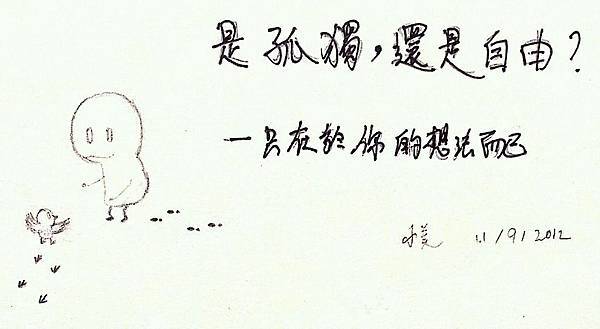 是孤獨，還是自由？
一只在於你的想法而已
11/9/2012